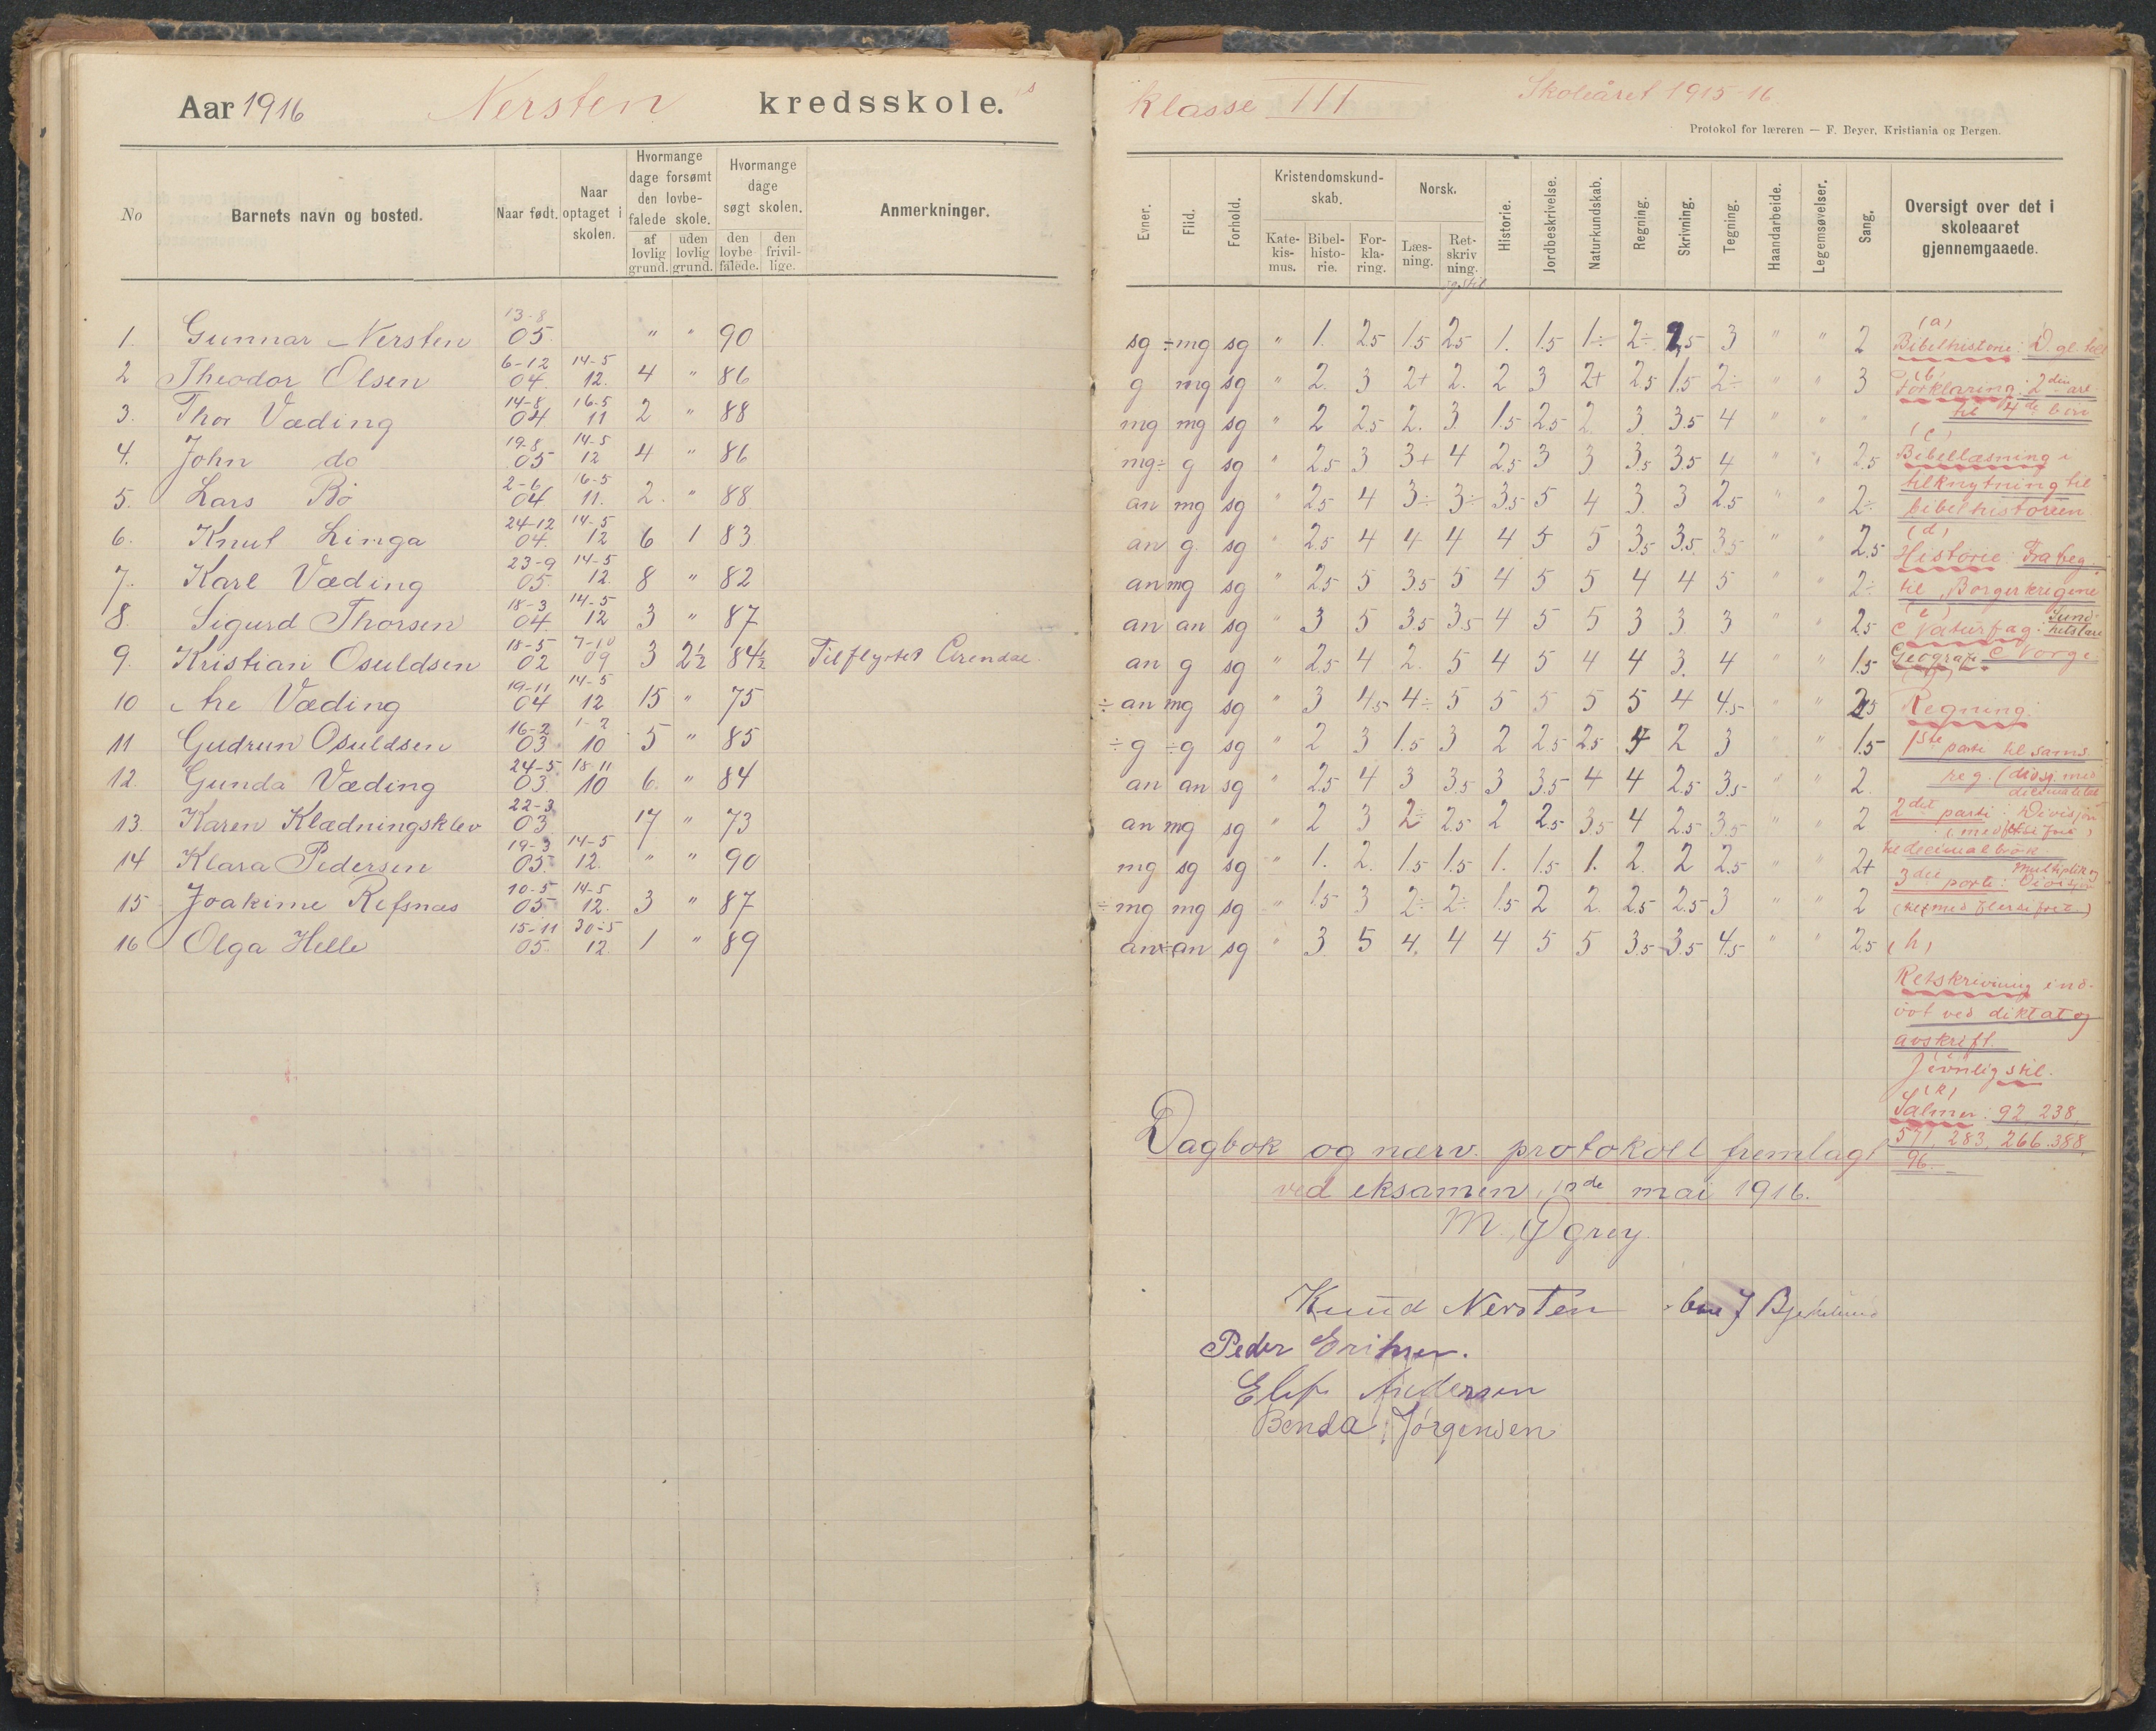 Aar 1916 Nersten kredsskole.s
No
Barnets navn og bosted.
Naar født.
Naar optaget i skolen.
Hvormange dage forsømt den lovbefalede skole.
af lovlig grund.
uden lovlig grund.
Hvormange dage søgt skolen.
den lovbefalede.
den frivillige.
Anmerkninger.
1. Gunnar Nersten 13-8 05. " " 90
2 Theodor Olsen 6-12 04. 14-5 12. 4 " 86
3. Thor Væding 14-8 04 16-5 11 2 " 88
4. John do 19-8 05 14-5 12 4 " 86
5. Lars Bö 2-6 04 16-5 11. 2. " 88
6. Knut Linga 24-12 04. 14-5 12 6 1 83
7. Karl Væding 23-9 05. 14-5 12. 8 " 82
8. Sigurd Thorsen 18-3 04 14-5 12 3 " 87
9. Kristian Osuldsen 18-5 02 7-10 09 3 2½ 84½ Tilflyttet Arendal.
10 Are Væding 19-11 04 14-5 12 15 " 75
11 Gudrun Osuldsen 16-2 03 1-2 10 5 " 85
12. Gunda Væding 24-5 03. 18-11 10 6. " 84
13. Karen Klædningsklev 22-3 03 17 " 73
14 Klara Pedersen 19-3 05. 14-5 12. " " 90
15 Joakime Refsnæs 10-5 05 14-5 12. 3 " 87
16 Olga Helle 15-11 05. 30-5 12. 1 " 89
Klasse III Skoleåret 1915-16
Protokol for læreren — F. Beyer, Kristiania og Bergen.
Evner.
Flid.
Forhold.
Kristendomskundskab.
Katekismus.
Bibelhistorie.
Forklaring.
Norsk.
Læsning.
Retskrivning. og stil
Historie.
Jordbeskrivelse.
Naturkundskab.
Regning.
Skrivning.
Tegning.
Haandarbeide.
Legemsøvelser.
Sang.
Oversigt over det i skoleaaret gjennemgaaede.
sg ÷mg sg " 1. 2.5 1.5 2.5 1. 1.5 1÷ 2÷ 2,5 3 " " 2
g mg sg " 2. 3 2+ 2. 2 3 2+ 2.5 1.5 2÷ " " 3
mg mg sg " 2 2.5 2. 3 1.5 2.5 2. 3. 3.5 4 " " "
mg÷ g sg " 2.5 3 3+ 4 2.5 3 3 3.5 3.5 4 " " 2.5
an mg sg " 2.5 4 3÷ 3÷ 3.5 5 4 3. 3 2.5 " " 2÷
an g. sg " 2.5 4 4 4 4 5 5 3.5 3.5 3.5 " " 2.5
an mg sg " 2.5 5 3.5 5 4 5 5 4 4 5 " " 2÷
an an sg " 3 5 3.5 3.5 4 5 5 3 3. 3 " " 2.5
an g sg " 2.5 4 2. 5 4 5 4 4 3. 4 " " 1.5
÷an mg sg " 3 4.5 4÷ 5 5 5 5 5 4 4.5 " " 2.5
÷g ÷g sg " 2 3 1.5 3 2 2.5 2.5 4 2 3 " " 1.5
an an sg " 2.5 4 3 3.5 3 3.5 4 4 2.5 3.5 " " 2.
an mg sg " 2 3 2÷ 2.5 2 2.5 3.5 4 2.5 3.5 " " 2
mg sg sg " 1. 2. 1.5 1.5 1. 1.5 1. 2. 2 2.5 " " 2+
÷mg mg sg " 1.5 3 2÷ 2÷ 1.5 2 2. 2.5 2.5 3 " " 2
an ÷an sg " 3 5 4. 4 4 5 5 3.5 3.5 4.5 " " 2.5
(a)
Bibelhistorie: D. gl. test
(b)
Forklaring: 2den art.
til 4de bön
(c)
Bibellæsning i
tilknytning til
bibelhistorien
(d)
Historie: Fra beg.
til Borgerkrigene
(e)
Naturfag: Sundhetslære
Geografi: Norge
Regning:
1ste parti til sams.
reg. (divisj. med
2det parti: Divisjon
til decimalbrök.
3dje parti: Multiplik. og Divisjon
(h)
Retskrivning ind-
övt ved diktat og
avskrift.
(i)
Jevnlig stil.
(k)
Salmer: 92, 238,
571, 283, 266, 388,
96.
Dagbok og nærv. protokoll fremlagt
ved eksamen, mai 1916.
M. Øgrey.
Knud Nersten
Peder Eriksen.
Elef Andersen
Benda Jørgensen